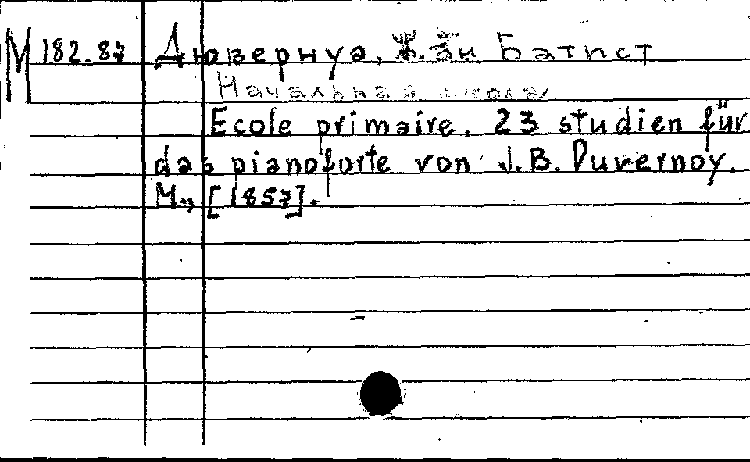 M 182.87 Дювернуа, Жан Батист
Начальная школа
Ecole primaire. 23 studien für
das pianoforte von J.B. Duvernoy.
М., [1857].